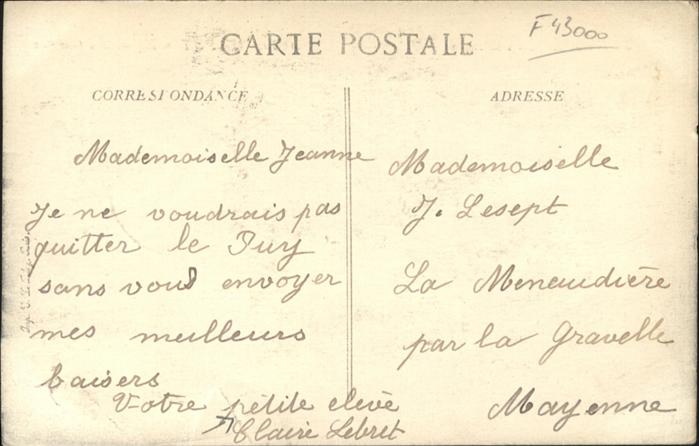 F 43000
CARTE POSTALE
CORRESPONDANCE
Mademoiselle Jeanne
Je ne voudrais pas
quitter le Puy
sans vous envoyer
mes meilleurs
baisers
Votre pétite elevè
Claire Lebret
ADRESSE
Mademoiselle
J. Lesept
La Menaudière
par la Gravelle
Mayenne